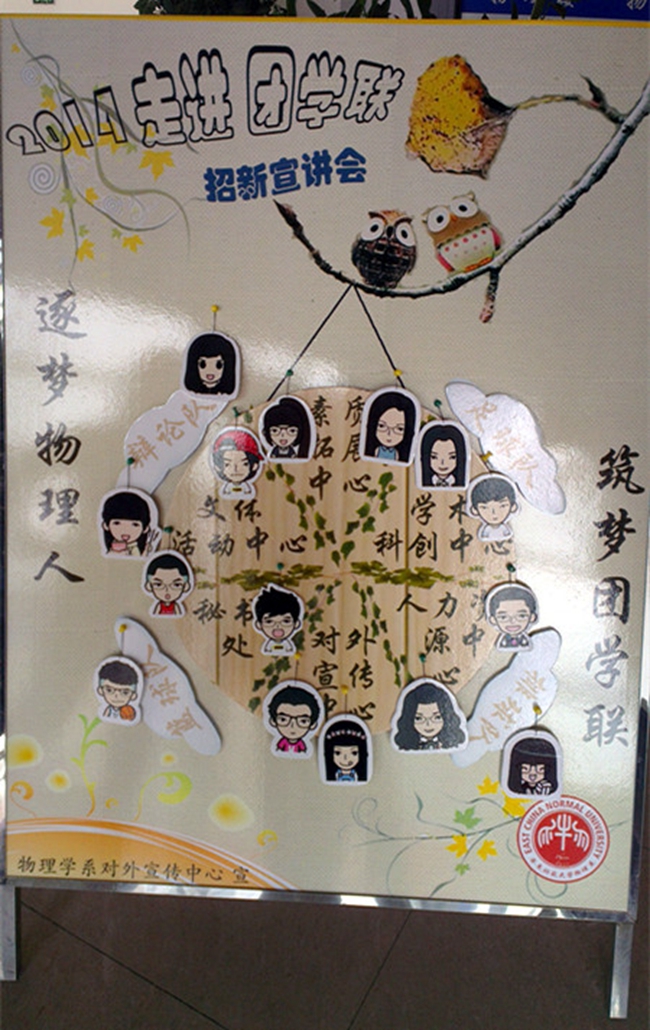 2014 走进 团学联
招新宣讲会
逐梦物理人
筑梦团学联
辩论队
足球队
素质
拓展
中心
文体
活动中心
学术
科创中心
秘书
处
对外
宣传
中心
人力
源中
心
物理学系对外宣传中心 宣
EAST CHINA NORMAL UNIVERSITY